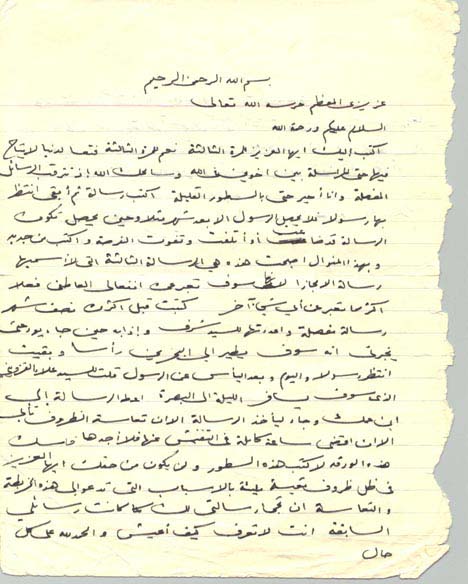 بسم الله الرحمن الرحيم
عزيزي المعظم حرسه الله تعالى
السلام عليكم ورحمة الله
اكتب إليك ايها العزيز للمرة الثالثة نعم للمرة الثالثة فتعسا لدنيا لا يتاح
فيها حتى المراسلة بين اخوين في الله وسامحك الله إذ تترقب الرسائل
المفصلة وانا أحير حتى بالسطور القليلة اكتب رسالة ثم أبقى انتظر
بها رسولا فلا يحصل الرسول الا بعد شهر مثلا وحين يحصل تكون
الرسالة قد ضاعت أو أتلفت وتفوت الفرصة واكتب من جديد
وبهذا المنوال اصبحت هذه هي الرسالة الثالثة التي لأسميها
رسالة الايجاز لانها سوف تعبر عن انفعالي العاطفي فعلا
اكثر مما تعبر عن أي شيء آخر كتبت قبل اكثر من نصف شهر
رسالة مفصلة واعددتها للسيد شرف وإذا به حين جاء يودعني
يخبرني انه سوف يطير الى البحرين رأسا وبقيت
انتظر رسولا واليوم وبعد اليأس عن الرسول قلت للسيد علاء
الذي سوف يسافر الليلة الى البصرة اعط الرسالة إلى
ابن عمك وجاء ليأخذ الرسالة الان تعاسة الظروف تأبى
الان اقضي ساعة كاملة في التفتيش عنها فلا أجدها فامسك
هذه الورقة لاكتب هذه السطور ولن يكون من حقك ايها العزيز
في ظل ظروف تعيسة مليئة بالاسباب التي تدعو الى هذه
والتعاسة ان تجازي رسالتي لك كما كانت رسائلي
السابقة انت لا تعرف كيف أعيش والحمد لله على كل
حال